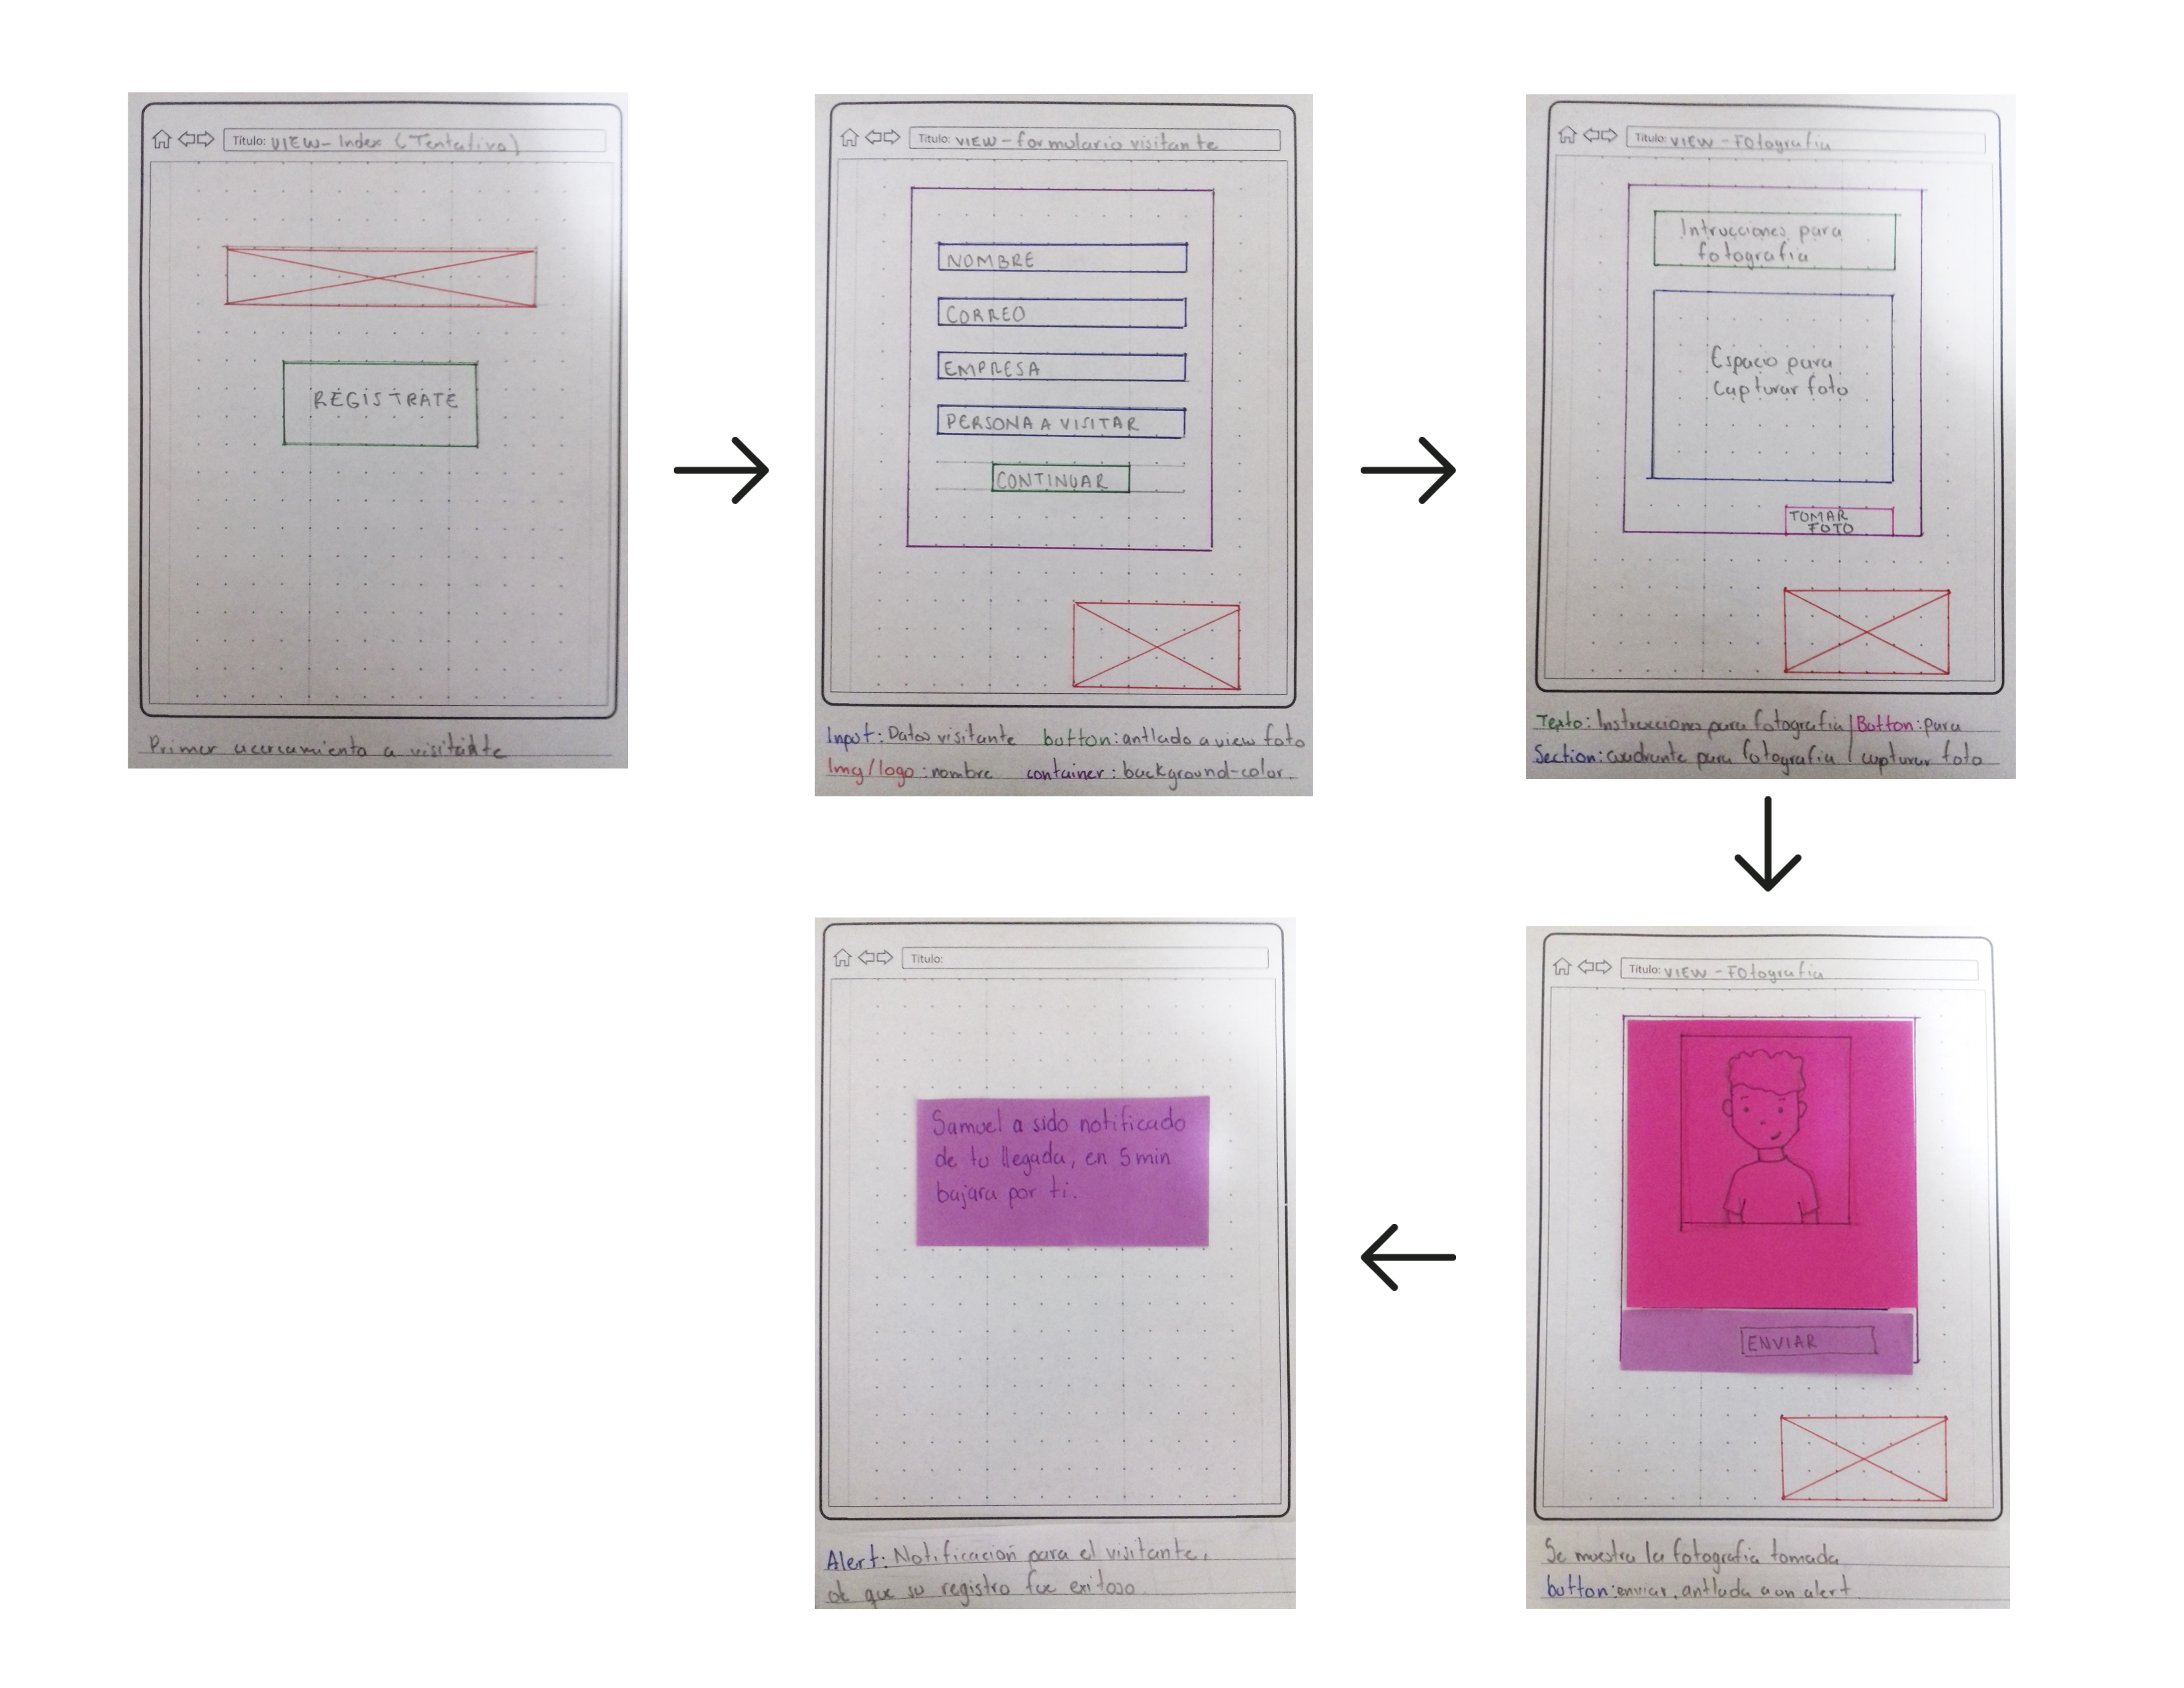 Título: VIEW- Index (Tentativa)
REGISTRATE
Primer acercamiento a visitante
Título: VIEW - formulario visitante
NOMBRE
CORREO
EMPRESA
PERSONA A VISITAR
CONTINUAR
Input: Datos visitante button: antlado a view foto
Img/logo: nombre container: background-color.
Título: VIEW - Fotografia
Intrucciones para
fotografia
Espacio para
Capturar foto
TOMAR
FOTO
Texto: Instrucciones para fotografia | Button: para
Section: cuadrante para fotografia | capturar foto
Título: VIEW - Fotografia
ENVIAR
Se muestra la fotografia tomada
button: enviar, antlada a un alert
Título:
Samuel a sido notificado
de tu llegada, en 5 min
bajara por ti.
Alert: Notificación para el visitante,
de que su registro fue exitoso.